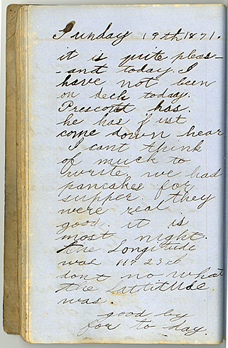 Sunday 19th 1871.
it is quite pleas-
-ant today. I
have not been
on deck today
Prescott has.
he has just
come down hear
I cant think
of much to
write. we had
pancakes for
supper they
were real
good. it is
most night.
the Longitude
was
dont no what
the latitude
was.
good by
for to day.